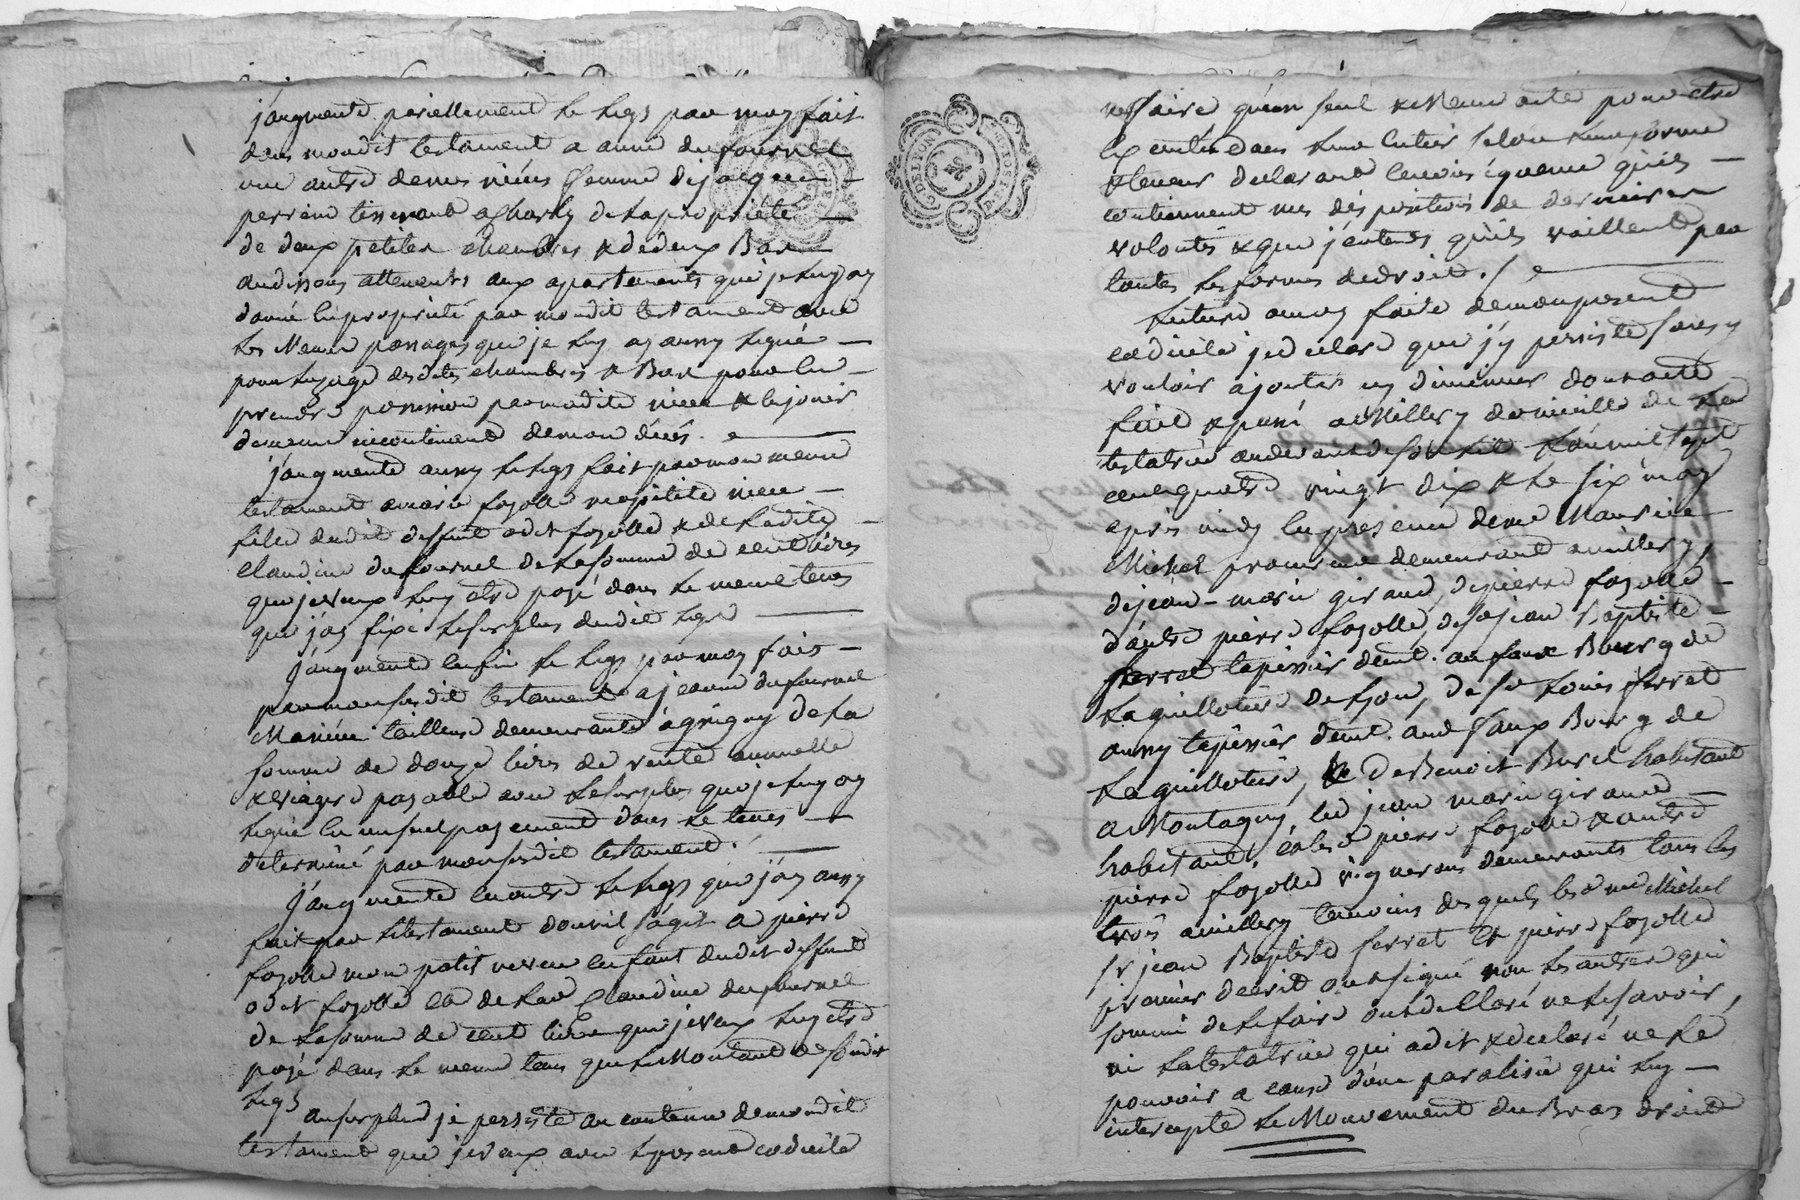 j'augmente pareillement le legs par moy fait
dans mondit testament a anne dufournel
une autre de mes niéces femme de jacques
perrin tisserant a Charly de la propriété
de deux petites chambres & de deux Bas
audessous attenants aux apartements que je luy ay
donné en propriété par mondit testament avec
les mêmes passages que je luy ay aussy legué
pour l'uzage desdites chambres & Bas pour en
prendre possession par madite niece & en jouir
de meme incontinent de mon décés.
j'augmente aussy le legs fait par mon meme
testament a marie fazolle ma petite niece
fille dudit deffunt odet fazolle & de ladite
claudine dufournel de la somme de cent livres
que je veux luy etre payé dans le meme tems
que j'ay fixé le surplus dudit legs
j'augmente enfin le legs par moy fait
par mon susdit testament a jeanne dufournel
tailleuse demeurante a grigny de la
somme de douze livres de rente annuelle
& viagere payable avec le surplus que je luy ay
legué en un seul payement dans le tems
determiné par mon susdit testament.
j'augmente en outre le legs que j'ay aussy
fait par le testament dont il s'agit a pierre
fazolle mon petit neveu enfant dudit deffunt
odet fazolle et de lad claudine dufournel
de la somme de cent livres que je veux luy etre
payé dans le meme tems que le Montant de sondit
legs
au surplus je persiste au contenu de mondit
testament que je veux avec le present codicile
ne faire qu'un seul & meme acte pour etre
executé dans leur entier selon leur forme
& teneur declarant en consequence qu'ils
contiennent mes dispositions de derniere
volonté & que j'entends qu'ils vaillent par
toutes les formes de droit./.
lecture a moy faite de mon present
codicile je declare que j'y persiste sans y
vouloir ajouter ny diminuer dont acte
fait & passé a Millery domicille de lad
testatrice au devant de son lit l'an mil sept
cent quatre vingt dix & le six may
après midy en presence de me Maurice
Michel praticien demeurant a millery,
de jean-marie giraud, de pierre fazolle
d'autre pierre fazolle, de sr jean Baptiste
ferret tapissier demt. au faux Bourg de
La guillotiere de Lyon, de sr Louis ferret
aussy tapissier demt. aud faux Bourg de
La guillotiere, & de Benoit Burel habitant
a Montagny, led jean marie giraud
habitant, lesd pierre fazolle & autre
pierre fazolle vignerons demeurants tous les
trois a millery temoins desquels led me Michel
sr jean Baptiste ferret et pierre fazolle
premier decrit ont signé non les autres qui
sommé de le faire ont dellaré ne le savoir,
ni la testatrice qui a dit & declaré ne le
pouvoir a cause d'une paralisie qui luy
intercepte le Mouvement du Bras droit